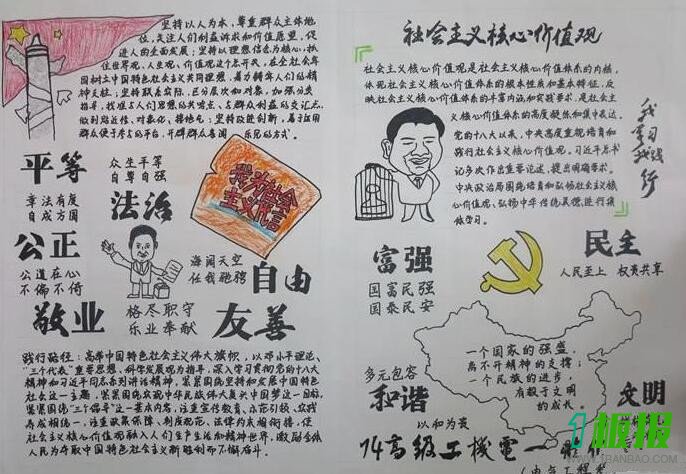 坚持以人为本，尊重群众主体地
位，关注人们利益诉求和价值愿望，促
进人的全面发展；坚持以理想信念为核心，抓
住世界观、人生观、价值观这个总开关，在全社会牢
固树立中国特色社会主义共同理想，着力铸牢人们的精
神支柱；坚持联系实际，区分层次和对象，加强分类
指导，找准与人们思想的共鸣点、与群众利益的交汇点，
做到贴近性、对象化、接地气；坚持改进创新，善于运用
群众便于参与的平台，开辟群众喜闻 乐见的方式。
平等
众生平等
自尊自强
章法有度
自成方圆
法治
我为社会
主义代言
公正
公道在心
不偏不倚
海阔天空
任我驰骋
自由
敬业
恪尽职守
乐业奉献
友善
践行路径：高举中国特色社会主义伟大旗帜，以邓小平理论、
“三个代表”重要思想、科学发展观为指导，深入学习贯彻党的十八大
精神和习近平同志系列讲话精神，紧紧围绕坚持和发展中国特色
社会主义这一主题，紧紧围绕实现中华民族伟大复兴中国梦这一目标，
紧紧围绕“三个倡导”这一基本内容，注重宣传教育、示范引领、实践
养成相统一，注重政策保障、制度规范、法律约束相衔接，使
社会主义核心价值观融入人们生产生活和精神世界，激励全体
人民为夺取中国特色社会主义新胜利而不懈奋斗。
社会主义核心价值观
社会主义核心价值观是社会主义核心价值体系的内核，
体现社会主义核心价值体系的根本性质和基本特征，反
映社会主义核心价值体系的丰富内涵和实践要求，是社会主
义核心价值体系的高度凝练和集中表达。
党的十八大以来，中央高度重视培育和
践行社会主义核心价值观。习近平总书
记多次作出重要论述、提出明确要求。
中央政治局围绕培育和弘扬社会主义核
心价值观、弘扬中华传统美德进行集
体学习。
我学习
我践行
富强
国富民强
国泰民安
民主
人民至上 权责共享
一个国家的强盛，
离不开精神的支撑；
一个民族的进步，
有赖于文明
的成长。
多元包容
和谐
以和为贵
文明
14高级工機電一
板报
WWW.1BANBAO.COM